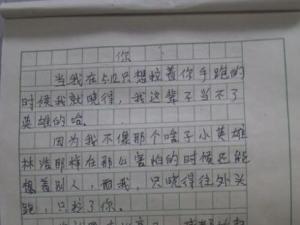 你
当我在5.12只想拉着你手跑的
时候我就晓得，我这辈子当不了
英雄的哈。
因为我不像那个啥子小英雄
林浩那样在那么害怕的时候还能
想着别人，而我，只晓得往外头
跑，只拉了你。